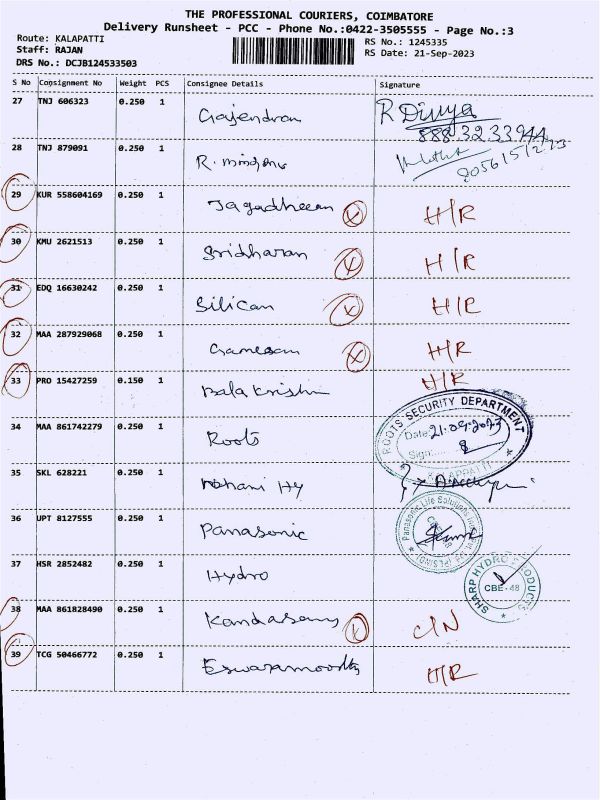 THE PROFESSIONAL COURIERS, COIMBATORE
Delivery Runsheet - PCC - Phone No.:0422-3505555 - Page No.:3
Route: KALAPATTI
RS No.: 1245335
Staff: RAJAN
RS Date: 21-Sep-2023
DRS No.: DCJB124533503
S No Consignment No Weight PCS Consignee Details Signature
27 TNJ 606323 0.250 1 Gajendran R Divya
28 TNJ 879091 0.250 1
29 KUR 558604169 0.250 1 Jagadheean X H/R
30 KMU 2621513 0.250 1 Sridharan X H/R
31 EDQ 16630242 0.250 1 Silican X H/R
32 MAA 287929068 0.250 1 Ganesan X H/R
33 PRO 15427259 0.150 1 Bala Krishn H/R
34 MAA 861742279 0.250 1 Roots
ROOTS SECURITY DEPARTMENT
Date: 21.09.2023
Sign:
35 SKL 628221 0.250 1
36 UPT 8127555 0.250 1 Panasonic
Panasonic Life Solutions
37 HSR 2852482 0.250 1 Hydro
SHARP HYDRO PRODUCTS
CBE-48
38 MAA 861828490 0.250 1 Kandasamy X C/N
39 TCG 50466772 0.250 1 Eswaramoorthy H/R